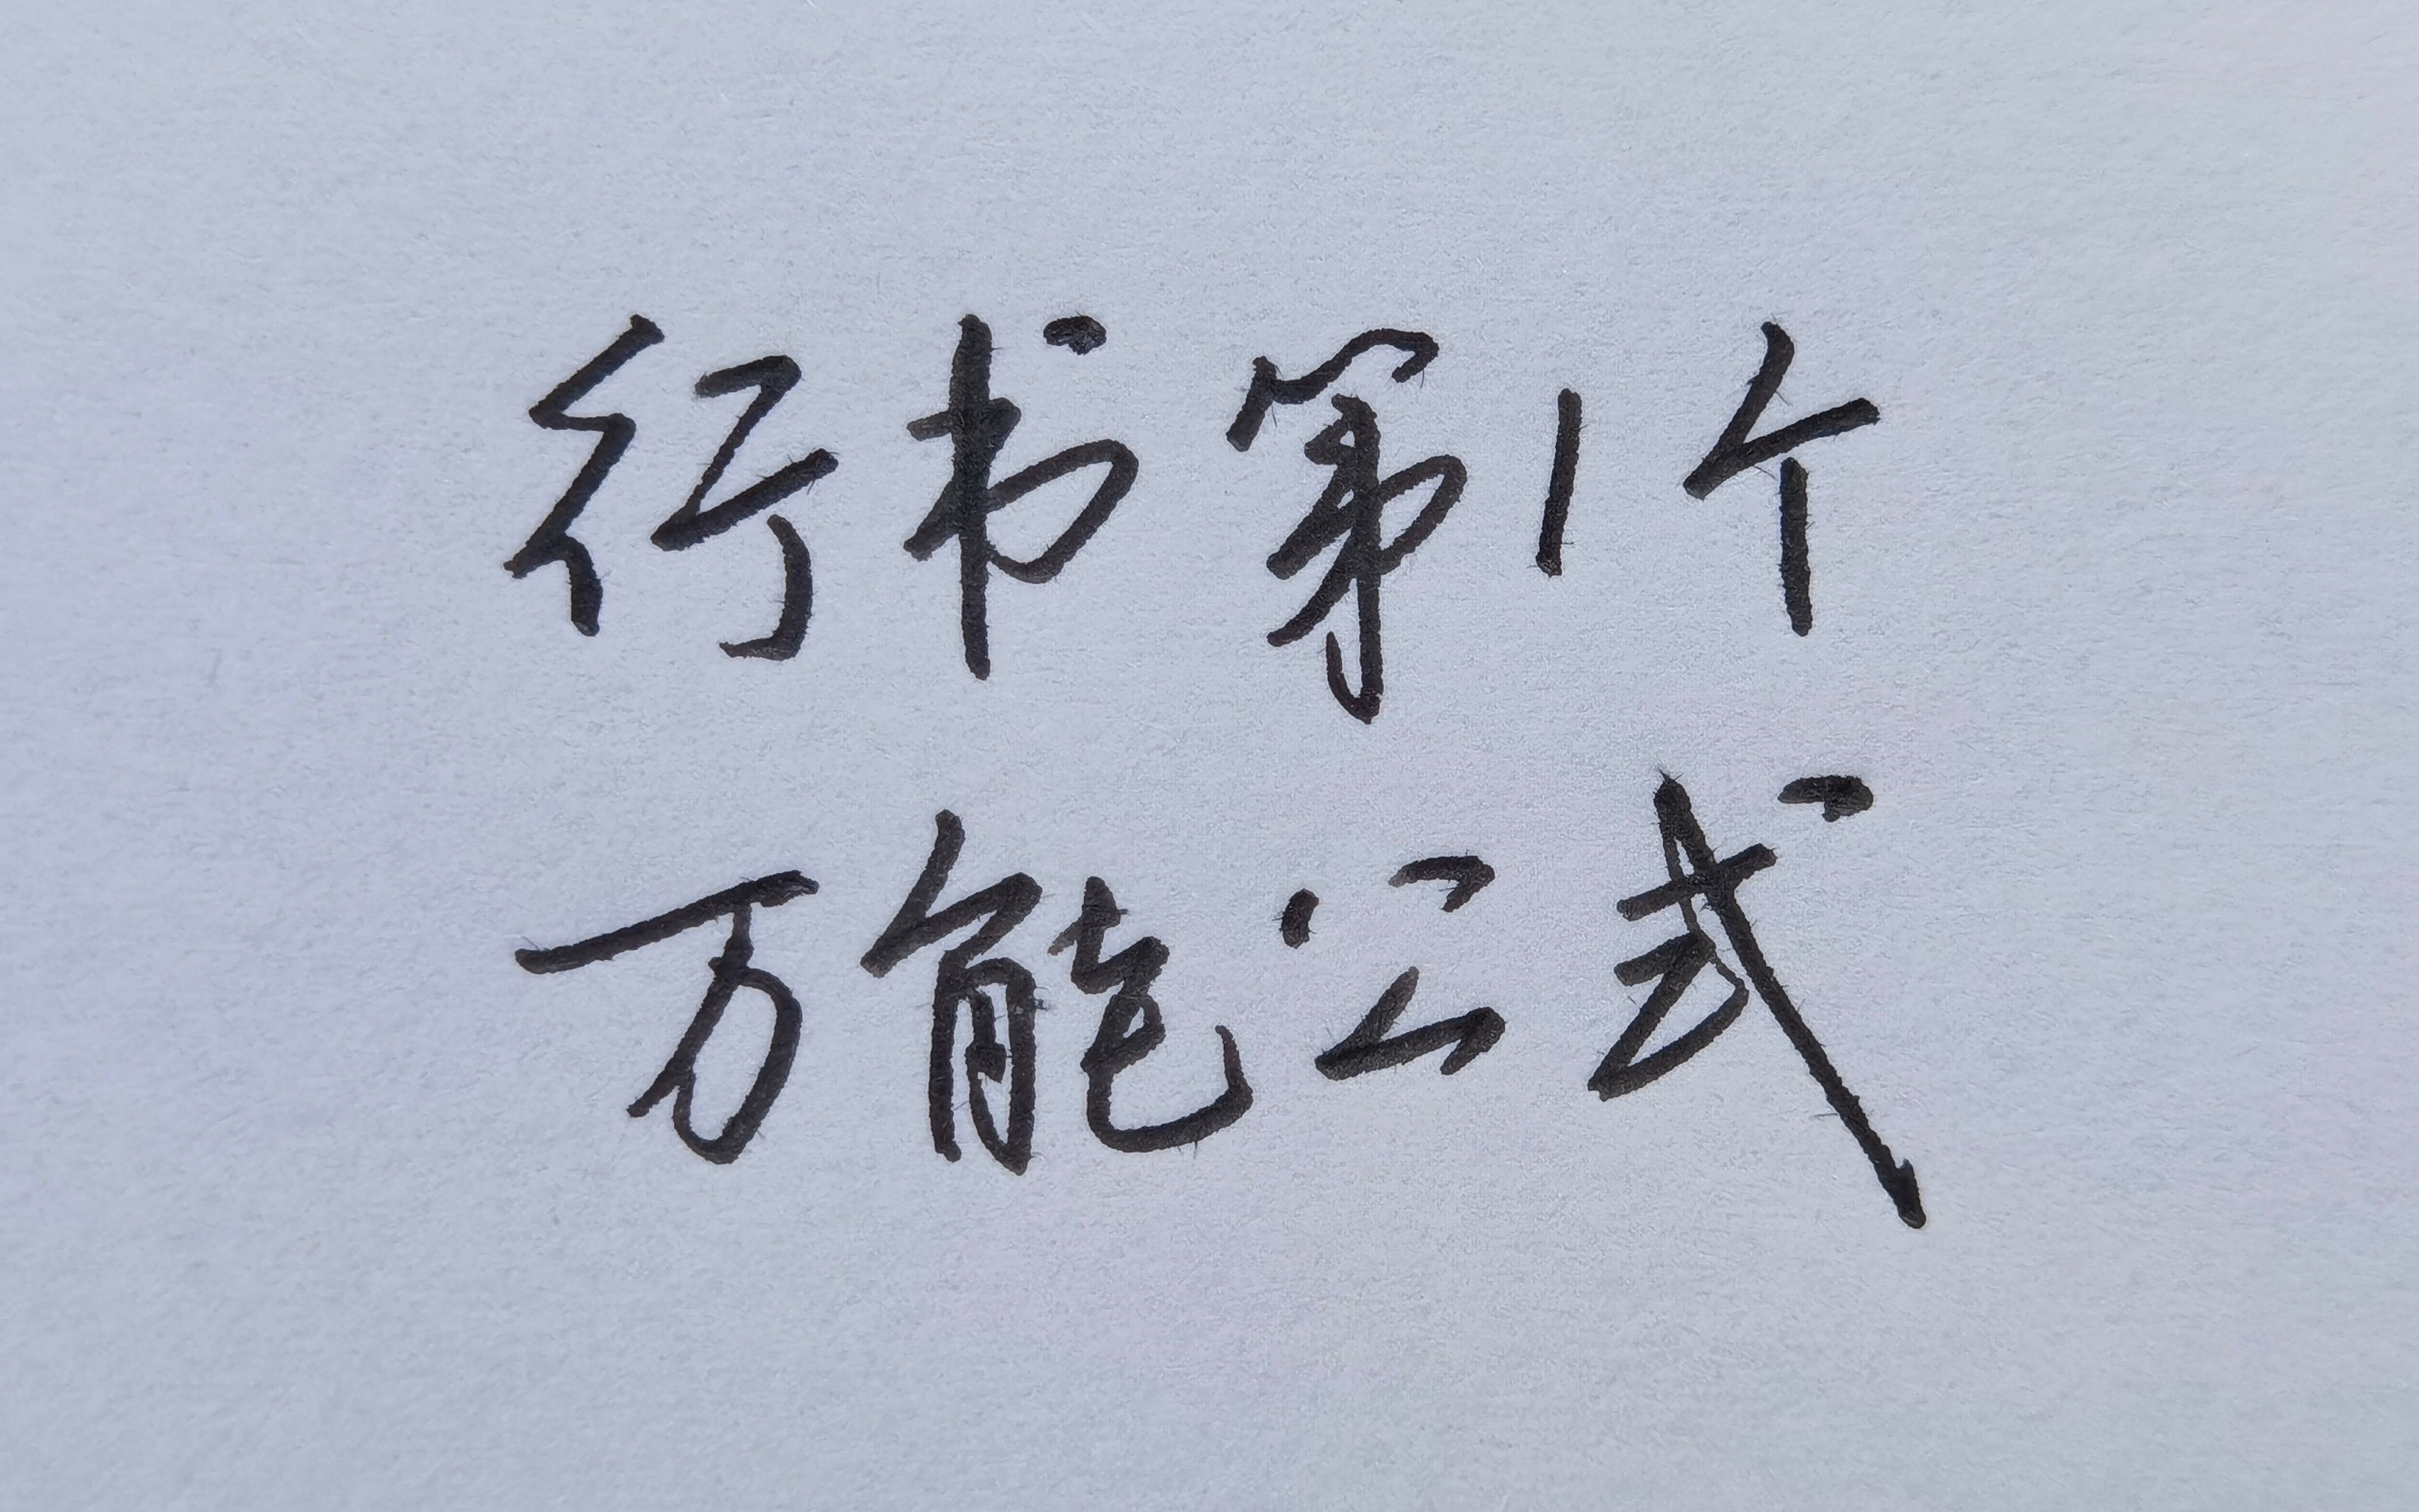 行书第1个
万能公式